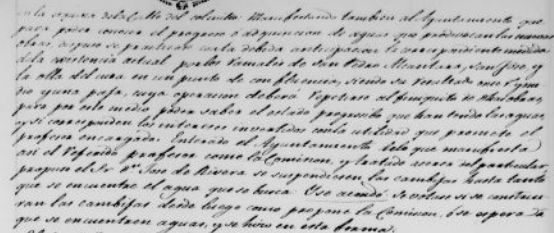 en la esquina de la Calle del colmillo. Manifestando tambien al Ayuntamiento que
para poder conocer el progreso ó adquisicion de aguas que produzcan las nuevas
obras, dispuso se practicase con la debida anticipacion la correspondiente medida
de la existencia actual por los Ramales de San Pedro Alcantara, San José, y
la olla del cura en un punto de confluencia, siendo su resultado once y me
dio y una paja, cuya operacion deberá repetirse al finiquito de otras obras,
para por este medio poder saber el estado progresibo que han tenido las aguas,
y si corresponden los intereses invertidos con la utilidad que promete el
profesor encargado. Enterado el Ayuntamiento de lo que manifiesta
asi el referido profesor como la Comision, y tratado acerca del particular,
propuso el Sr. Dn. Jose de Rivera se suspendiesen las cambijas hasta tanto
que se encuentre el agua que se busca. Y se acordó. Se votase si se constru
ran las cambijas desde luego como propone la Comision, ó se espera á
que se encuentren aguas, y se hizo en esta forma.